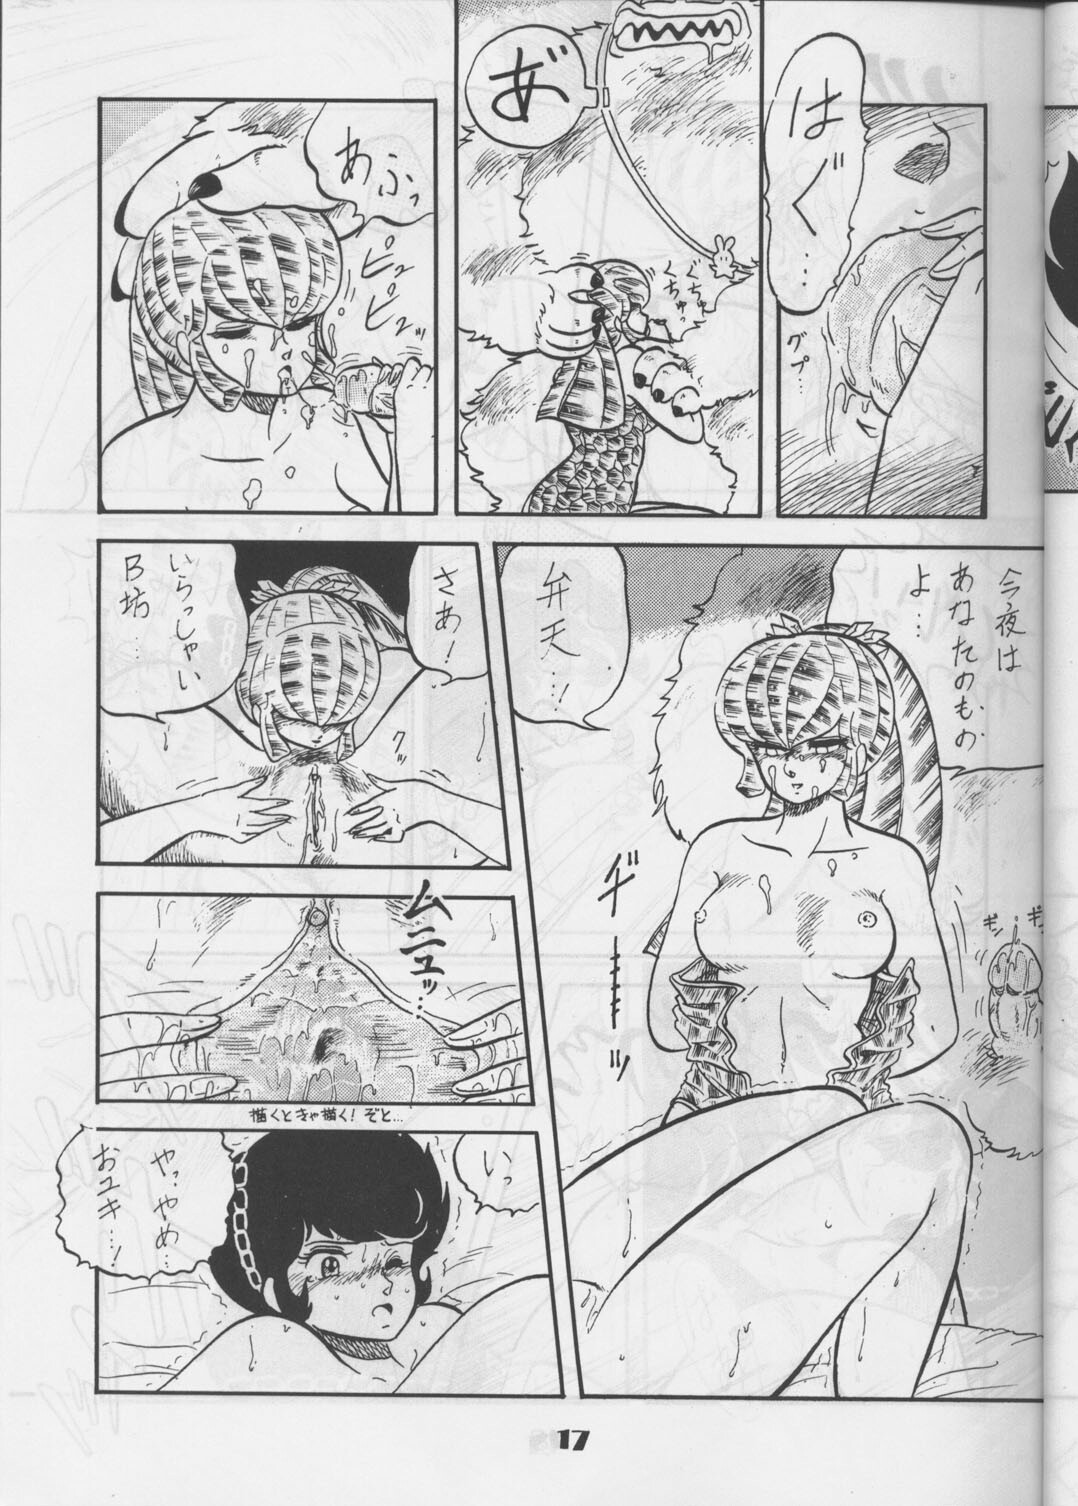 はぐ…
グプ…
あ゛
くちゅ
くちゅっ
あふっ
ピュ
ピピュッ
今夜は
あなたのもの
よ…
弁天…!
ギ───ッ
ギン
ギン
さあ!
いらっしゃい
B坊…
クッ
ムニュッ…
描くときゃ描く!ぞと…
いっ
やっやめ…
おユキ…!
17